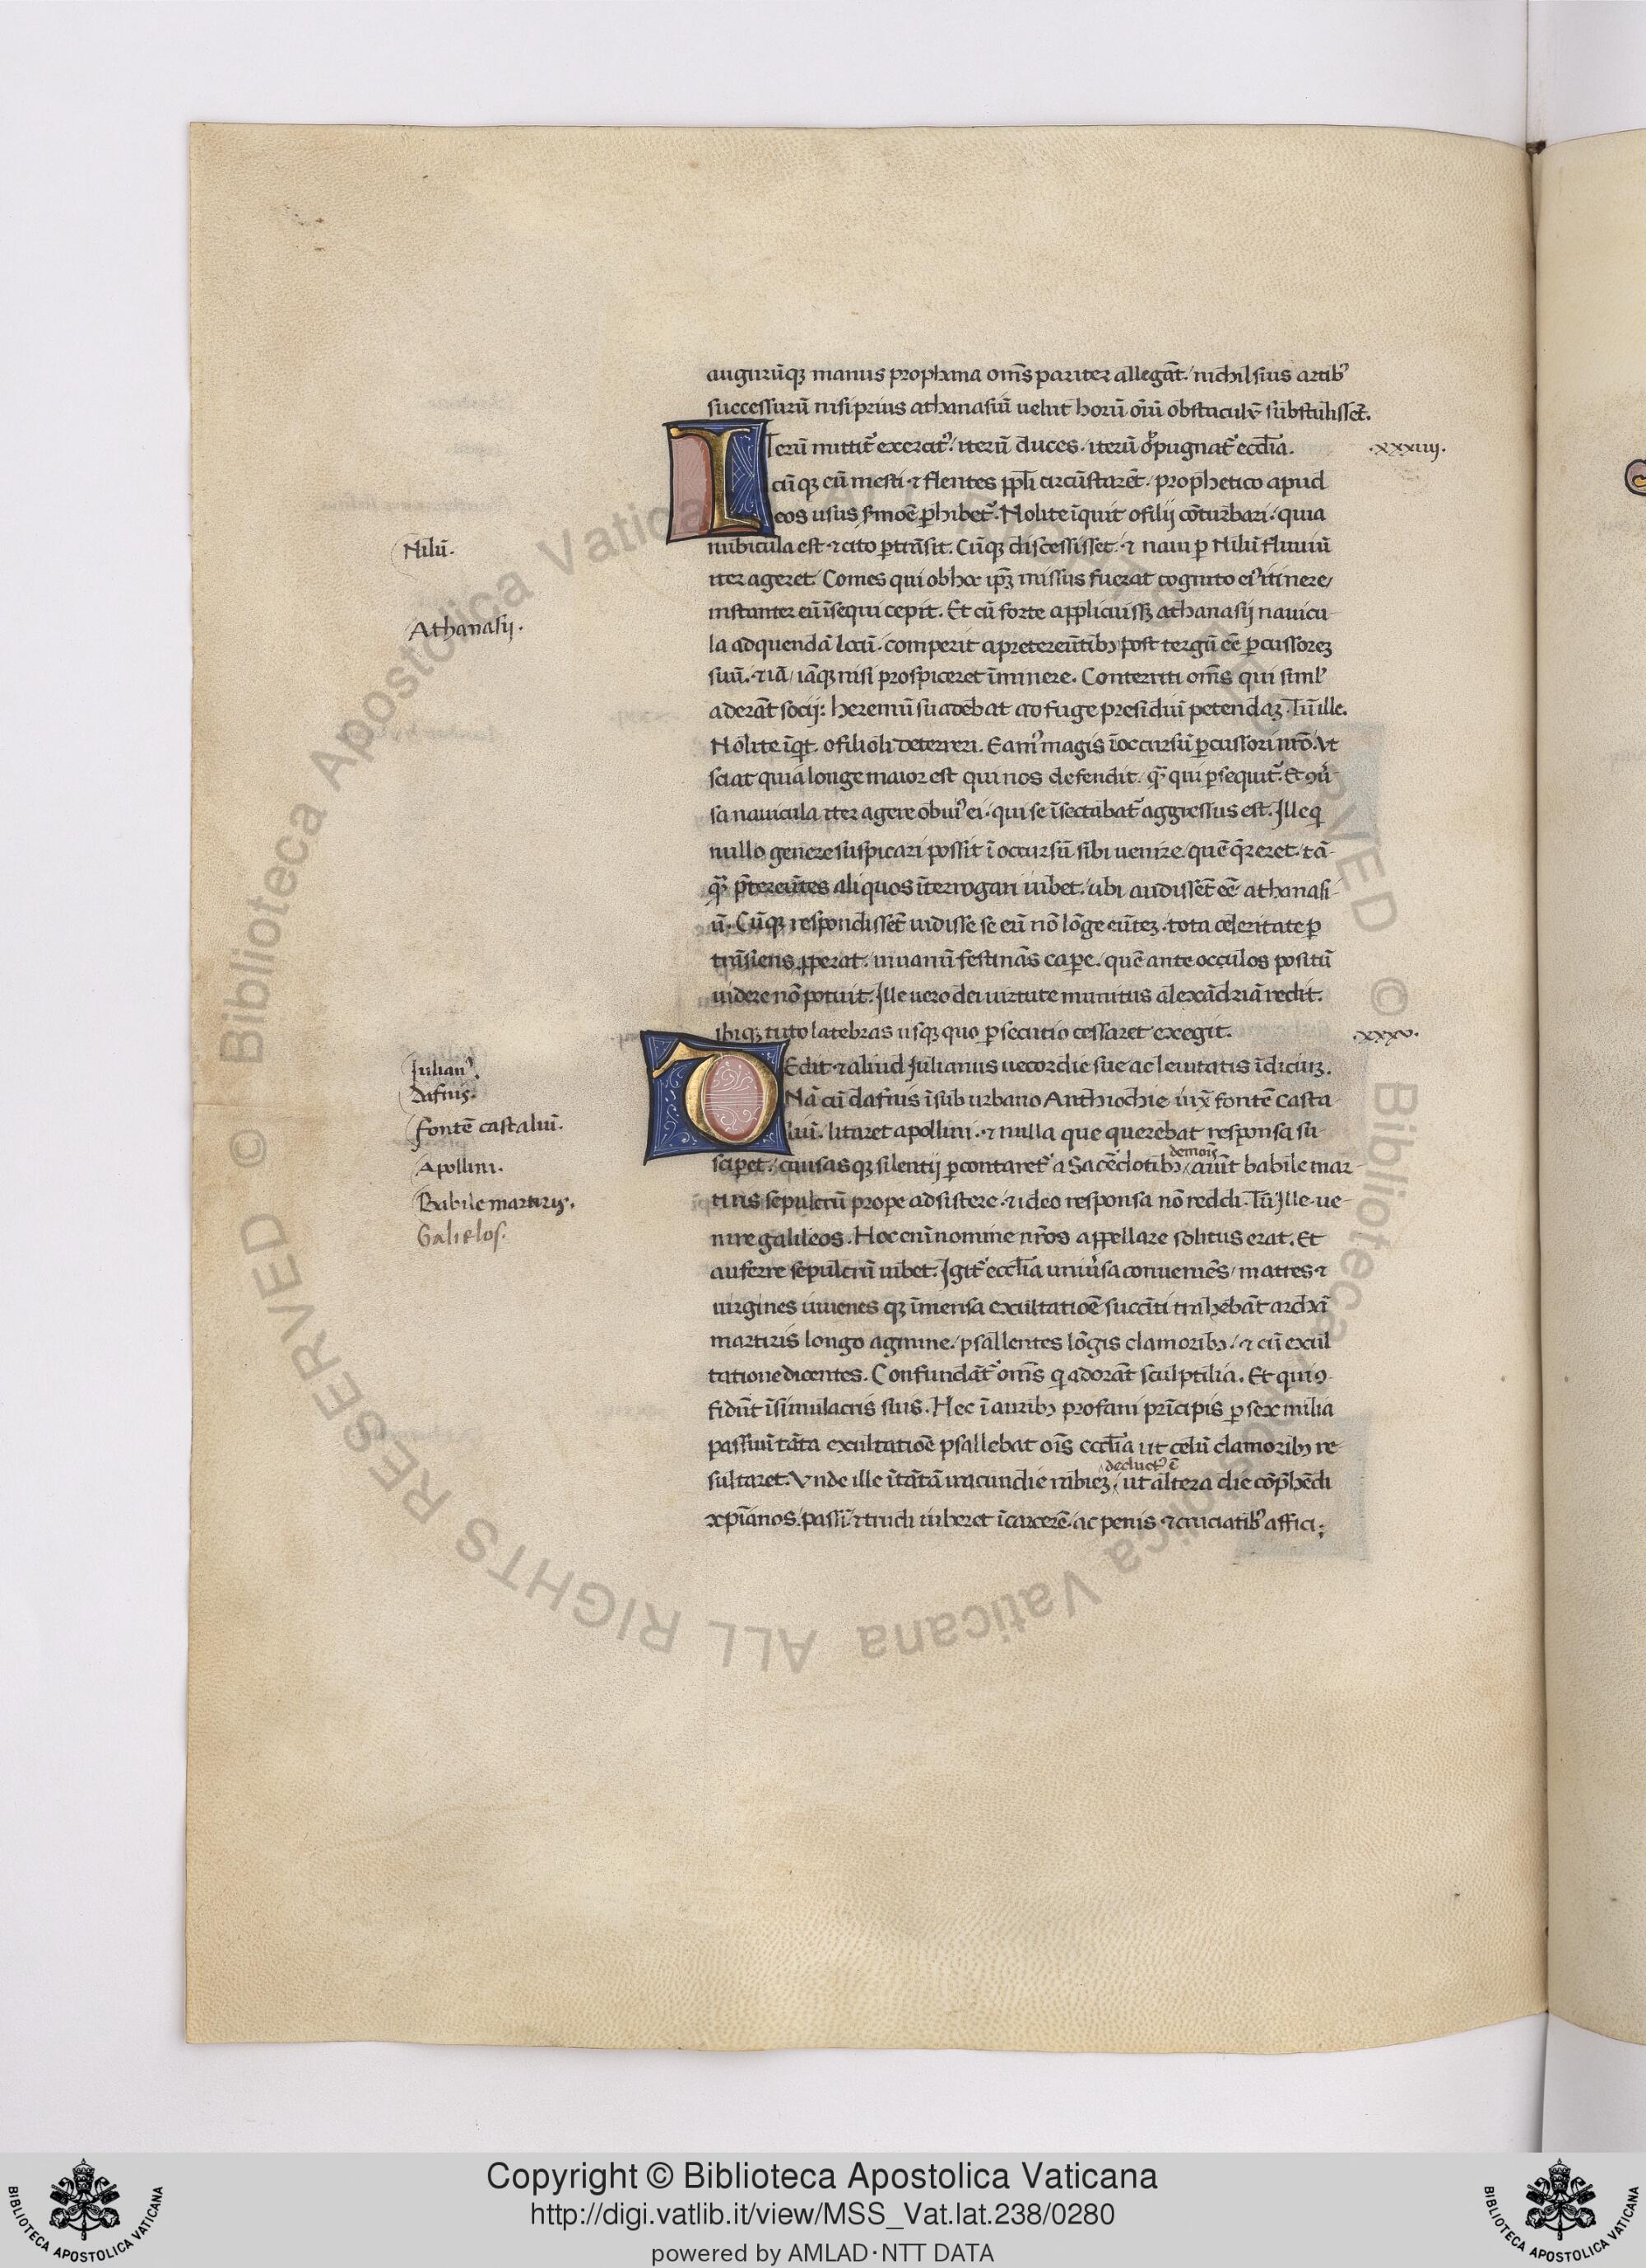 augurūqꝫ manus prophana om̄s pariter allegāt. nichil suis artibꝰ
successurū nisi prius athanasiū uelut horū oīū obstaculū substulisset.
ITerū mittit᷑ exercitꝰ. iterū duces. iterū oppugnat᷑ eccl̄ia.
.xxxiiij.
cūqꝫ eū mesti ⁊ flentes ppl̄i circūstarēt. prophetico apud
eos usus sermōe perhibet᷑. Nolite īquit o filij cōturbari. quia
Nilū.
nubicula est ⁊ cito ptrāsit. Cūqꝫ discessisset. ⁊ naui ꝑ Nilū fluuiū
iter ageret. Comes qui ob hoc ip̄ꝫ missus fuerat cognito eiꝰ itinere
instanter eū īsequi cepit. Et cū forte applicuissꝫ athanasij nauicu-
Athanasij.
la ad quendā locū. comperit a pretereūtibꝫ post tergū eē ꝑcussorem
suū. ⁊ iā iāqꝫ nisi prospiceret īminere. Conterriti om̄s qui simlꝰ
aderāt socij: heremū suadebāt ad fuge presidiū petendaꝫ. Tū ille.
Nolite īqt. o filioli deterreri. Eamꝰ magis ī occursū ꝑcussori nrō. Vt
sciat quia longe maior est qui nos defendit. qȝ qui ꝑsequit᷑. Et ꝯuer
sa nauicula iter agere obuiꝰ ei. qui se īsectabat᷑ aggressus est. Ille q
nullo genere suspicari possit ī occursū sibi uenire. quē q̄reret. tā-
qȝ p̄tereūtes aliquos īterrogari iubet. ubi audissēt eē athanasi-
ū. Cūqꝫ respondissēt uidisse se eū nō lōge eūteꝫ. tota celeritate ꝑ
trāsiens ꝓperat. inuanū festinās capere. quē ante occulos positū
uidere nō potuit. Ille uero dei uirtute munitus alexādriā redit.
ibiqꝫ tuto latebras usqꝫ quo ꝑsecutio cessaret exegit.
.xxxv.
DEdit ⁊ aliud Julianus uecordie sue ac leuitatis īdiciuꝫ.
Julianꝰ.
Dafnis.
Nā cū dafnis ī sub urbano Anthiochie iux̄ fontē Casta
Fontē castaliū.
liū. litaret apollini. ⁊ nulla que querebat responsa su-
Apollini.
demōis
sciperet. causas qꝫ silentij ꝑcontaret᷑ a Sacēdotibꝫ aiūt babile mar-
Babile martiris.
tiris sepulcrū prope adsistere. ⁊ ideo responsa nō reddi. Tū Ille. ue-
Galielos.
nire galileos. Hoc enī nomine nr̄os appellare solitus erat. Et
auferre sepulcrū iubet. Igit᷑ eccl̄ia uniuersa conueniēs matres ⁊
uirgines iuuenes qꝫ īmensa exultatiōe succīti trahebāt archā
martiris longo agmine. psallentes lōgis clamoribꝫ. ⁊ cū exul
tatione dicentes. Confundāt᷑ om̄s q adorāt sculptilia. Et qui ꝯ-
fidūt ī simulacris suis. Hec ī auribꝫ profani prīcipis ꝑ sex milia
passuū tāta exultatiōe psallebat oīs eccl̄ia ut celū clamoribꝫ re-
deductꝰ ē
sultaret. Vnde ille ītātā iracundie rabieꝫ ut altera die cōp̄hēdi
xp̄ianos. passī. ⁊ trudi iuberet ī carcerē. ac penis ⁊ cruciatibꝰ affici;
© Biblioteca Apostolica Vaticana ALL RIGHTS RESERVED © Biblioteca Apostolica Vaticana ALL RIGHTS RESERVED
Copyright © Biblioteca Apostolica Vaticana
http://digi.vatlib.it/view/MSS_Vat.lat.238/0280
powered by AMLAD·NTT DATA
BIBLIOTECA APOSTOLICA VATICANA
BIBLIOTECA APOSTOLICA VATICANA